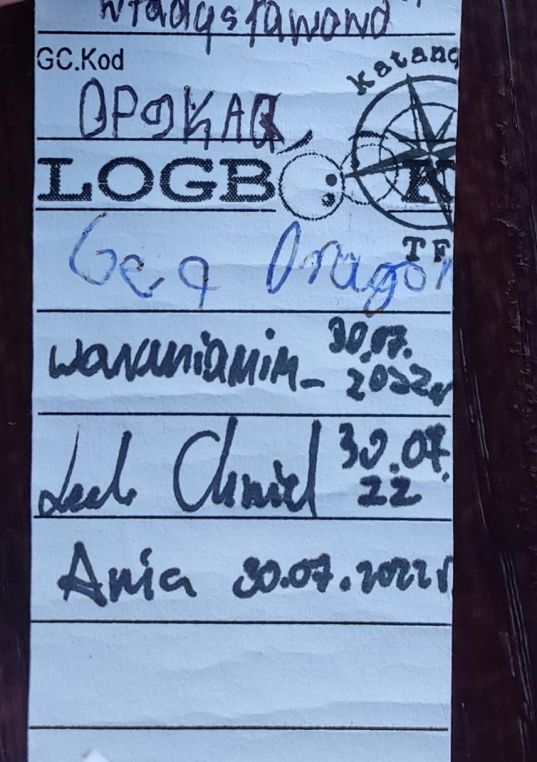 Władysławowo
GC.Kod
OPOKAQ
Katang
LOGBOOK
TF
Geo Dragon
30.07.
2022r
Lech Chmiel 30.07.
22
Ania 30.07.2022r